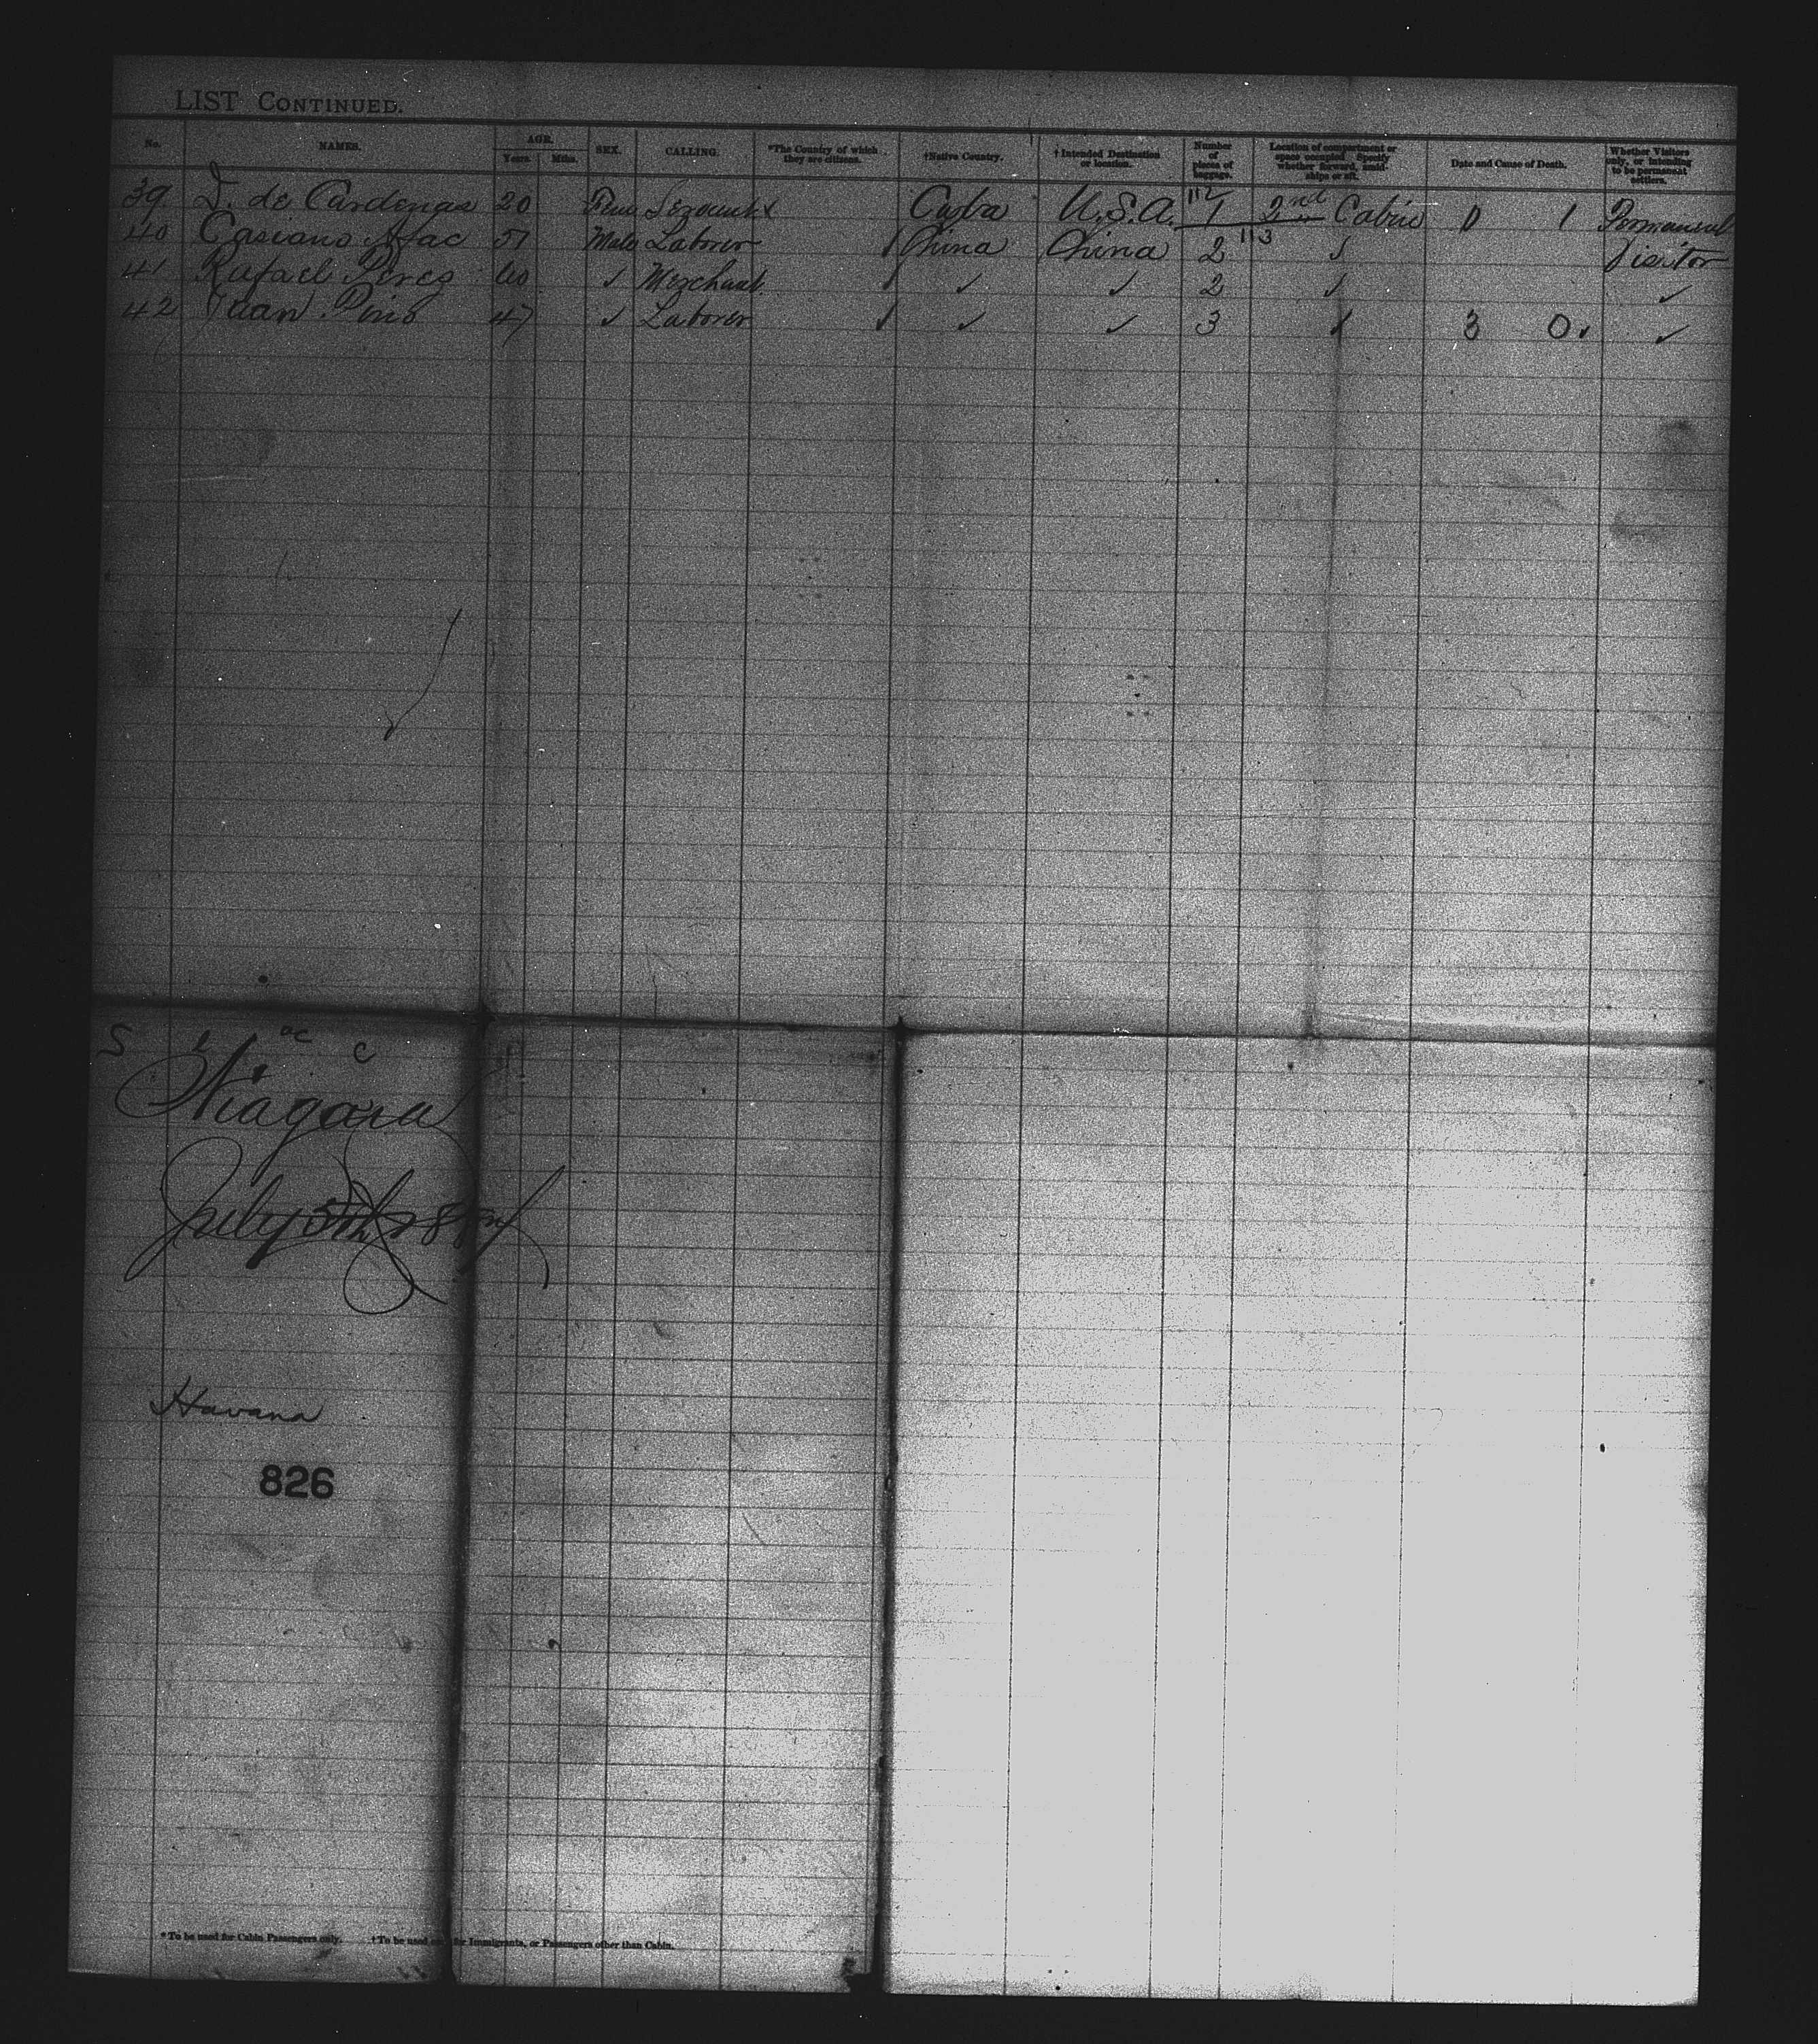 LIST CONTINUED.
No. NAMES. AGE. Years. Mths. SEX. CALLING. *The Country of which they are citizens. †Native Country. †Intended Destination or location. Number of pieces of baggage. Location of compartment or space occupied. Specify whether forward, amidships or aft. Date and Cause of Death. Whether Visitors only, or intending to be permanent settlers.
112
39 D. de Cardenas 20 Fem x Cuba U.S.A. 1 2nd Cabin 0 1 Permanent
113
40 Casiano 51 Male Laborer / China China 2 ✓ Visitor
41 Rafael Perez 40 ✓ Merchant / ✓ ✓ 2 ✓ ✓
42 Juan Pino 47 ✓ Laborer / ✓ ✓ 3 ✓ 3 0 ✓
S ac c
Niagara
July 5th
Havana
826
*To be used for Cabin Passengers only. †To be used only for Immigrants, or Passengers other than Cabin.